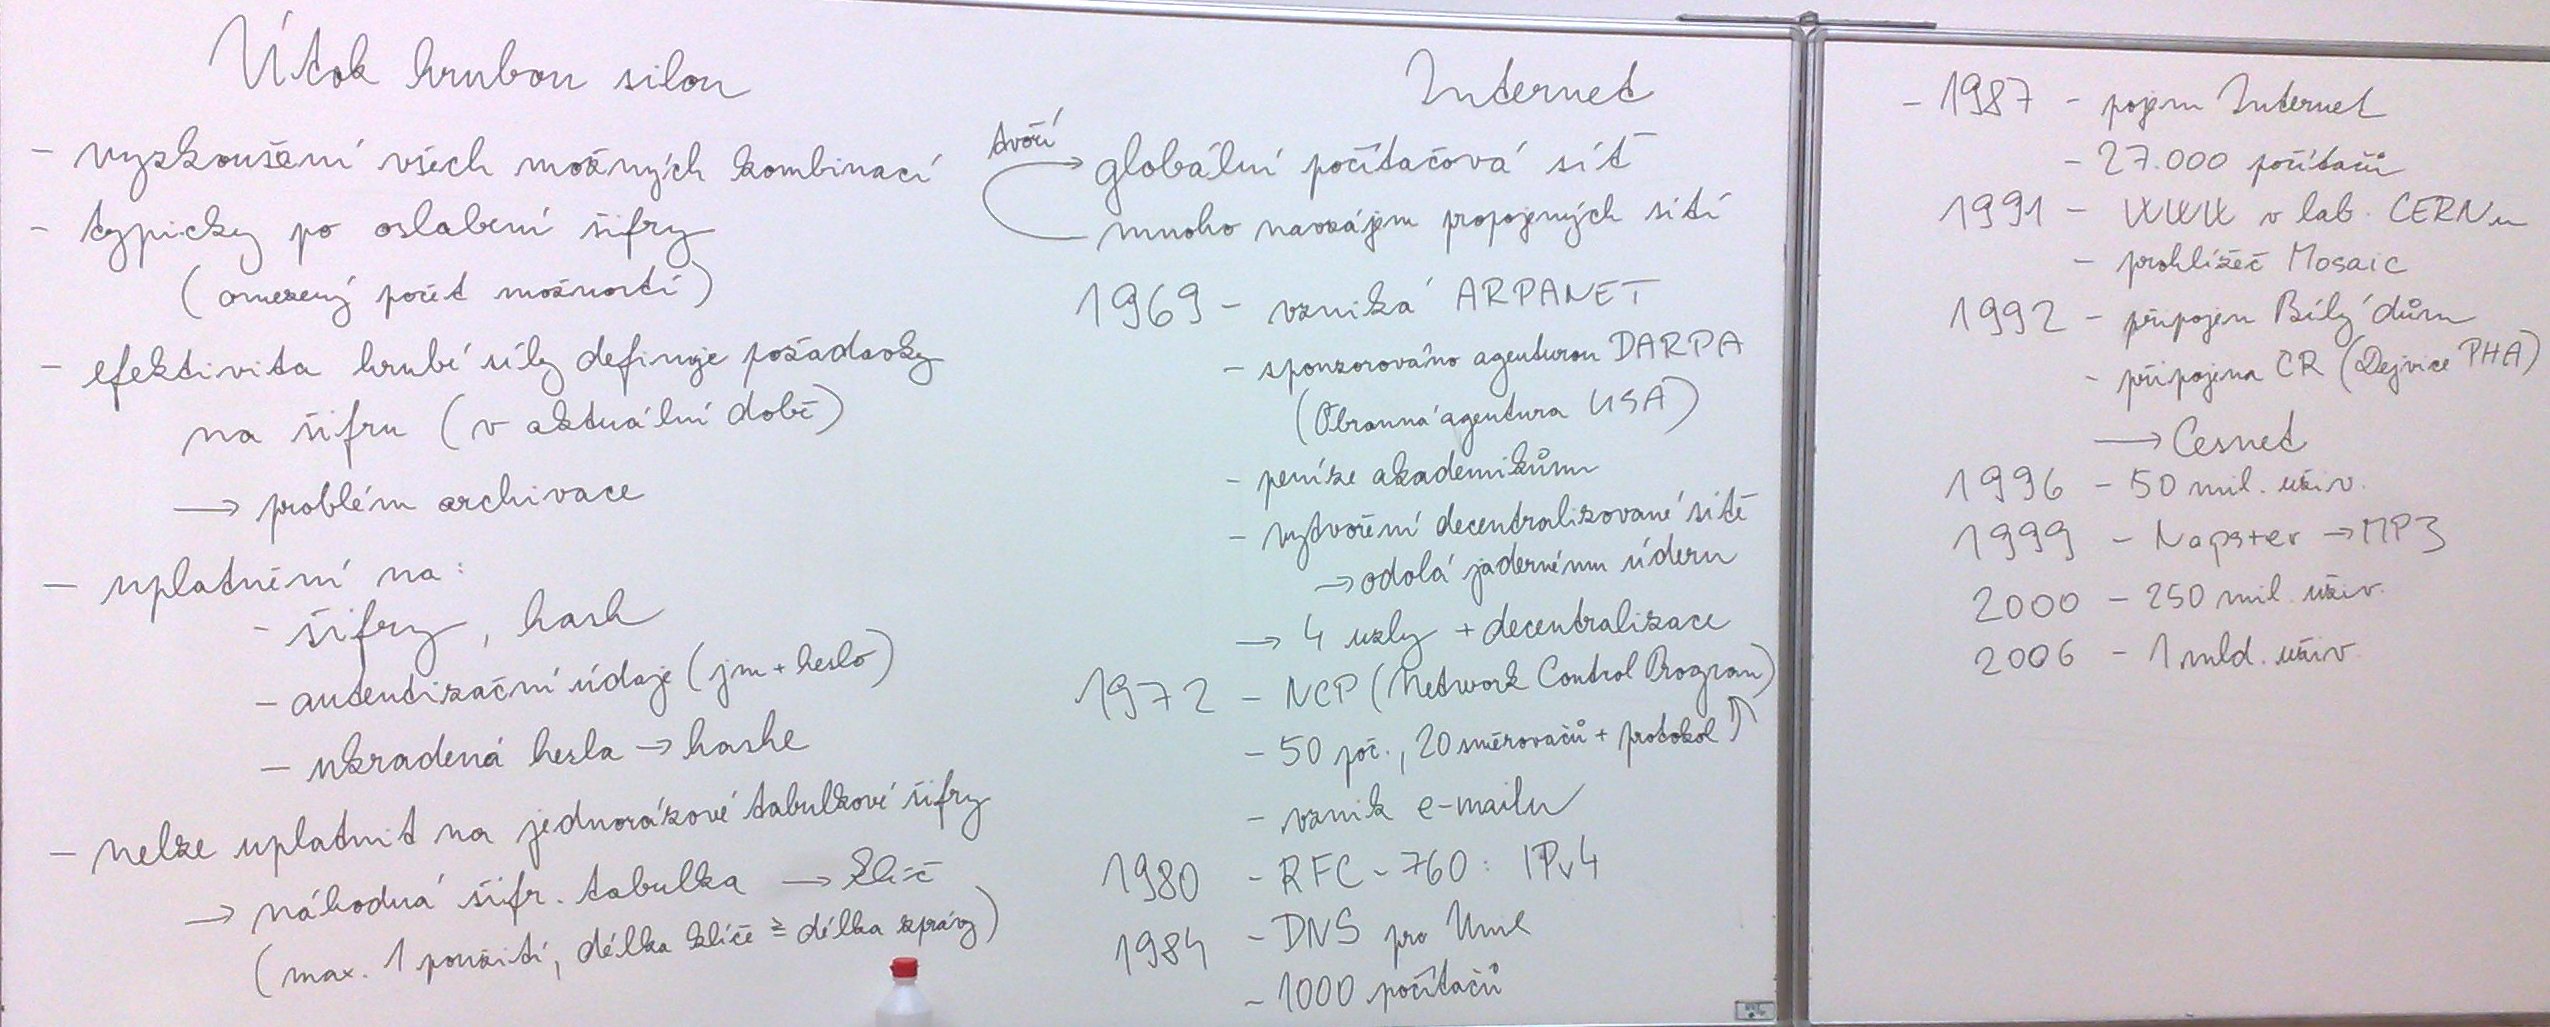 Útok hrubou silou
- vyzkoušení všech možných kombinací
- typicky po oslabení šifry
(omezený počet možností)
- efektivita hrubé síly definuje požadavky
na šifru (v aktuální době)
→ problém archivace
- uplatnění na:
- šifry, hash
- autentizační údaje (jm + heslo)
- ukradená hesla → hashe
- nelze uplatnit na jednorázové tabulkové šifry
→ náhodná šifr. tabulka → klíč
(max. 1 použití, délka klíče ≥ délka zprávy)
Internet
tvoří
globální počítačová síť
mnoho navzájem propojených sítí
1969 - vzniká ARPANET
- sponzorováno agenturou DARPA
(Obranná agentura USA)
- peníze akademikům
- vytvoření decentralizované sítě
→ odolá jadernému úderu
→ 4 uzly + decentralizace
1972 - NCP (Network Control Program)
- 50 poč., 20 směrovačů + protokol ↑
- vznik e-mailu
1980 - RFC - 760: IPv4
1984 - DNS pro
- 1000 počítačů
- 1987 - pojem Internet
- 27.000 počítačů
1991 - WWW v lab. CERNu
- prohlížeč Mosaic
1992 - připojen Bílý dům
- připojena ČR (Dejvice PHA)
→ Cesnet
1996 - 50 mil. uživ.
1999 - Napster → MP3
2000 - 250 mil. uživ.
2006 - 1 mld. uživ.